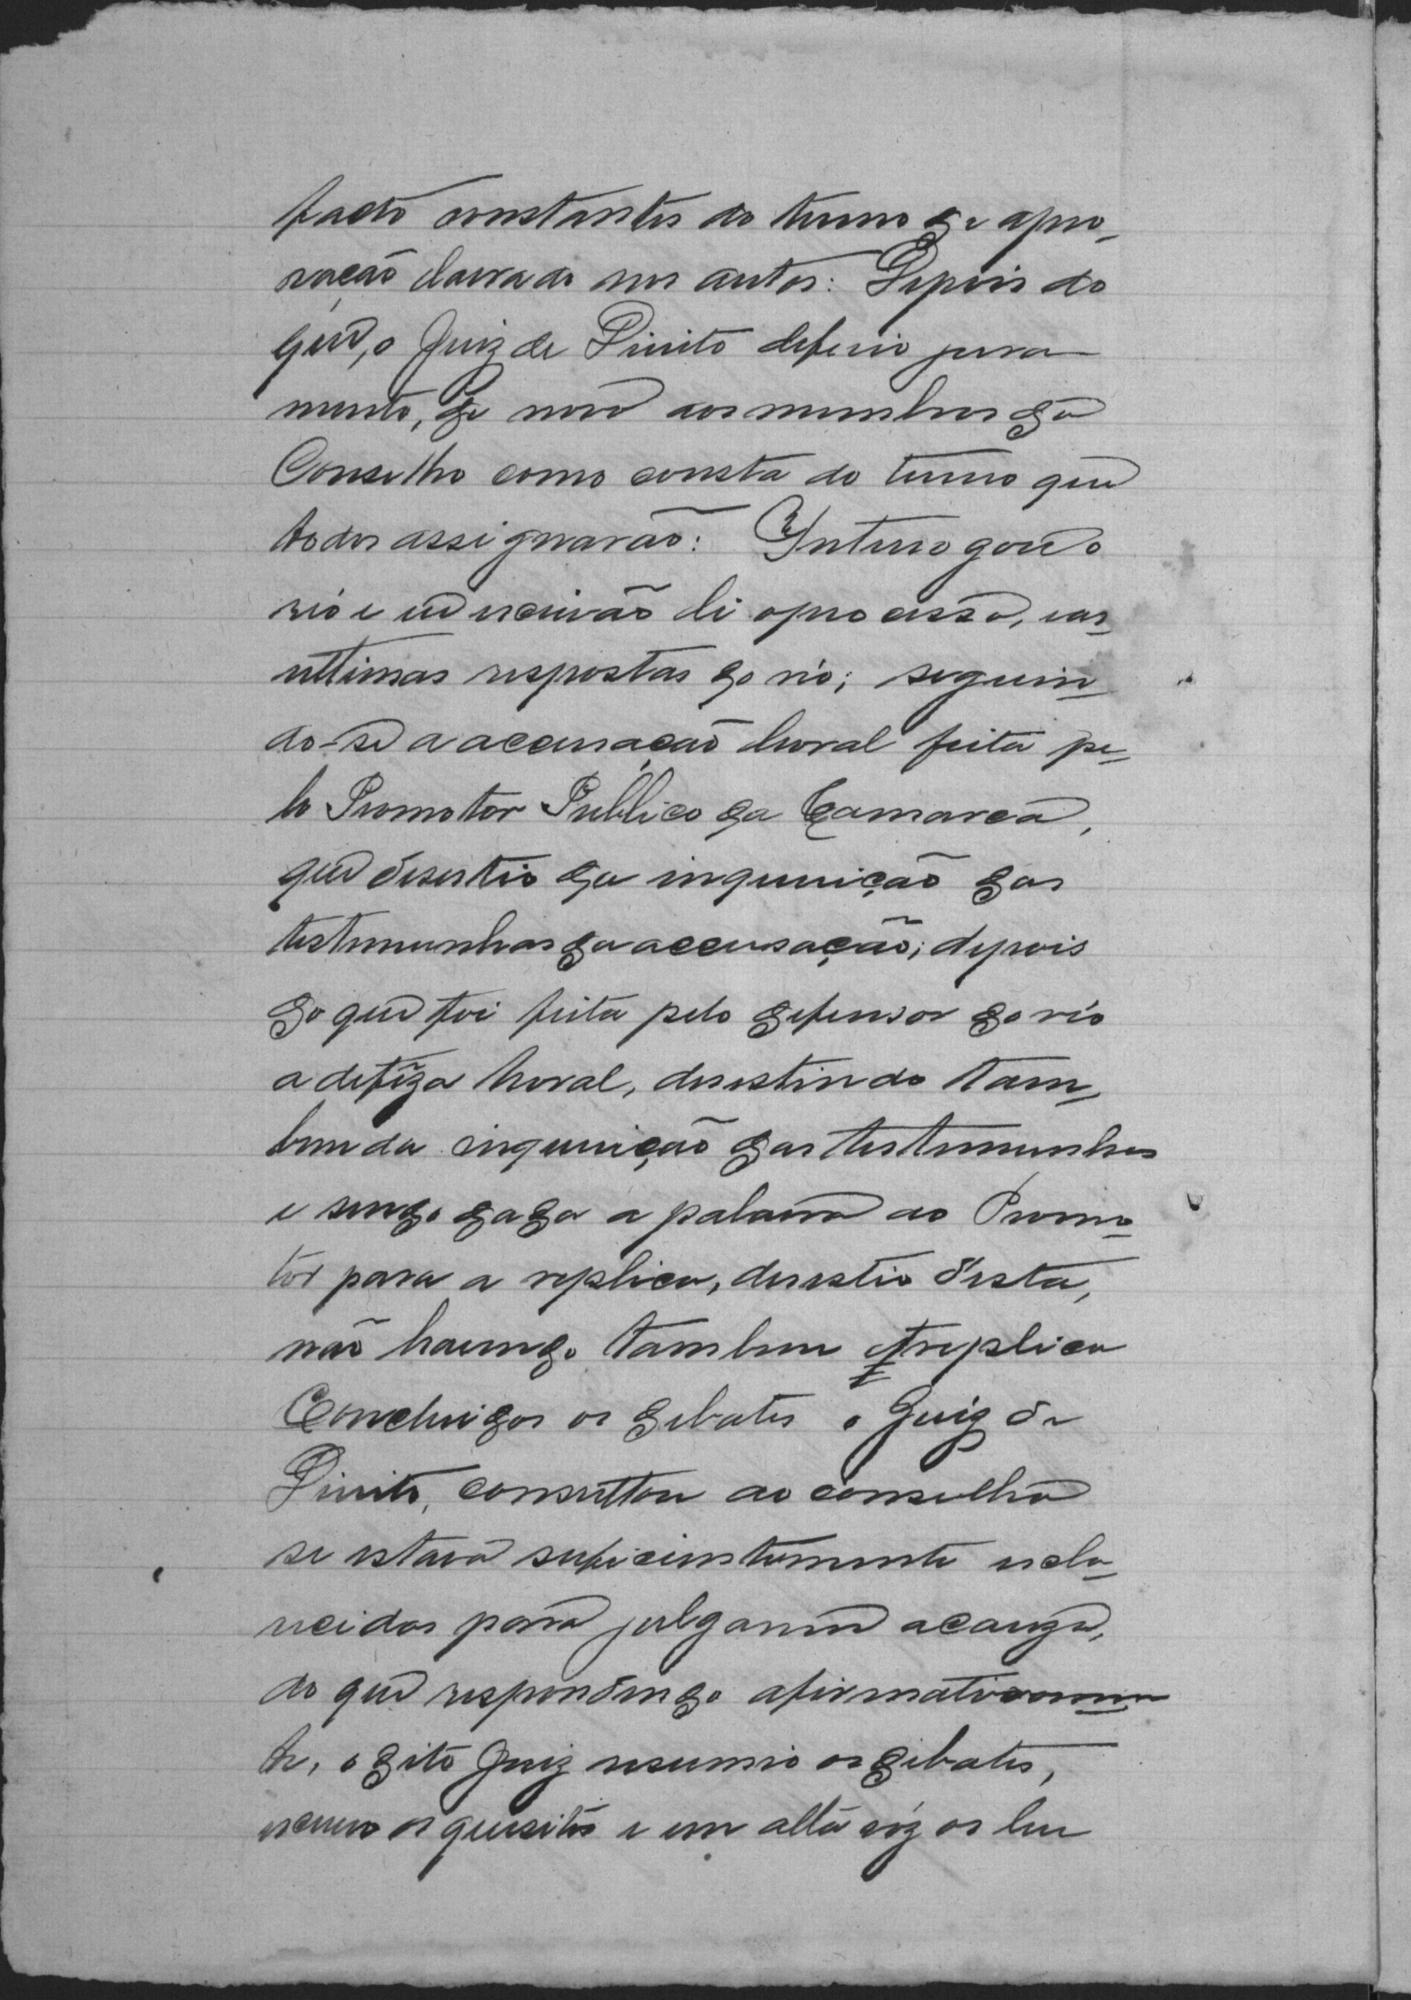 facto constantes do termo de apro-
vação lavrado nos autos: Depois do
que, o Juiz de Direito deferio jura
mento, de novo aos membros do
Conselho como consta do termo que
todos assignarão: Interrogou o
réo e eu escrivão li o processo, e as
ultimas respostas do réo; seguin-
do-se a accusação horal feita pe-
lo Promotor Publico da Comarca,
que desestio da inquirição das
testemunhas da accusação; depois
do que foi feita pelo defensor do réo
a defeza horal, desestindo tam-
bem da inquirição das testemunhas
e sendo dada a palavra ao Promo-
tor para a replica, desestio d'esta,
não havendo tambem treplica
Concluidos os debates o Juiz de
Direito, consultou ao conselho
se estava suficientemente escla-
recidos para julgarem a cauza,
do que respondendo afirmativamen-
te, o dito Juiz resumio os debates,
escreveo os quesitos e em alta vóz os leu